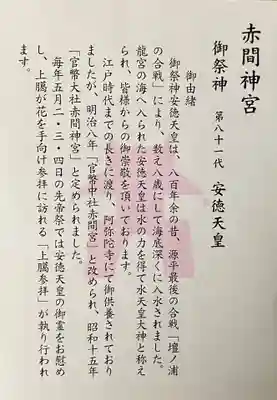 赤間神宮
御祭神 第八十一代 安徳天皇
御由緒
御祭神安徳天皇は、八百年余の昔、源平最後の合戦「壇ノ浦
の合戦」により、数え八歳にして海底深くに入水されました。
龍宮の海へ入られた安徳天皇は水の力を得て水天皇大神と称え
られ、皆様からの御崇敬を頂いております。
江戸時代までの長きに渡り、阿弥陀寺にて御供養されており
ましたが、明治八年「官幣中社赤間宮」と改められ、昭和十五年
「官幣大社赤間神宮」と定められました。
毎年五月二・三・四日の先帝祭では安徳天皇の御霊をお慰め
し、上臈が花を手向け参拝に訪れる「上臈参拝」が執り行われ
ます。